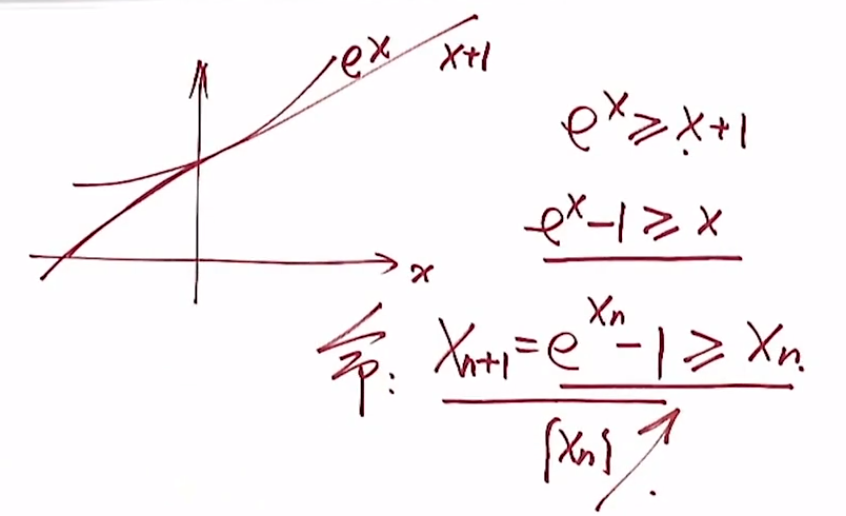 eˣ
x+1
eˣ ≥ x+1
eˣ-1 ≥ x
x
命: Xₙ₊₁ = e^{Xₙ} - 1 ≥ Xₙ.
{Xₙ} ↗.